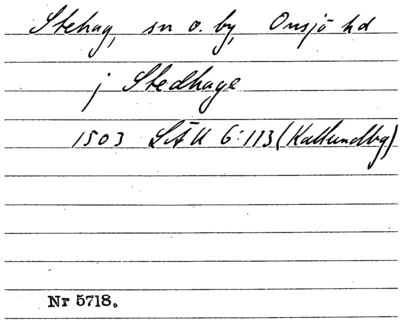 Stehag, sn o. by, Onsjö hd
j Stedhage
1503 LÄU 6:113 (Kallundbg)
Nr 5718.